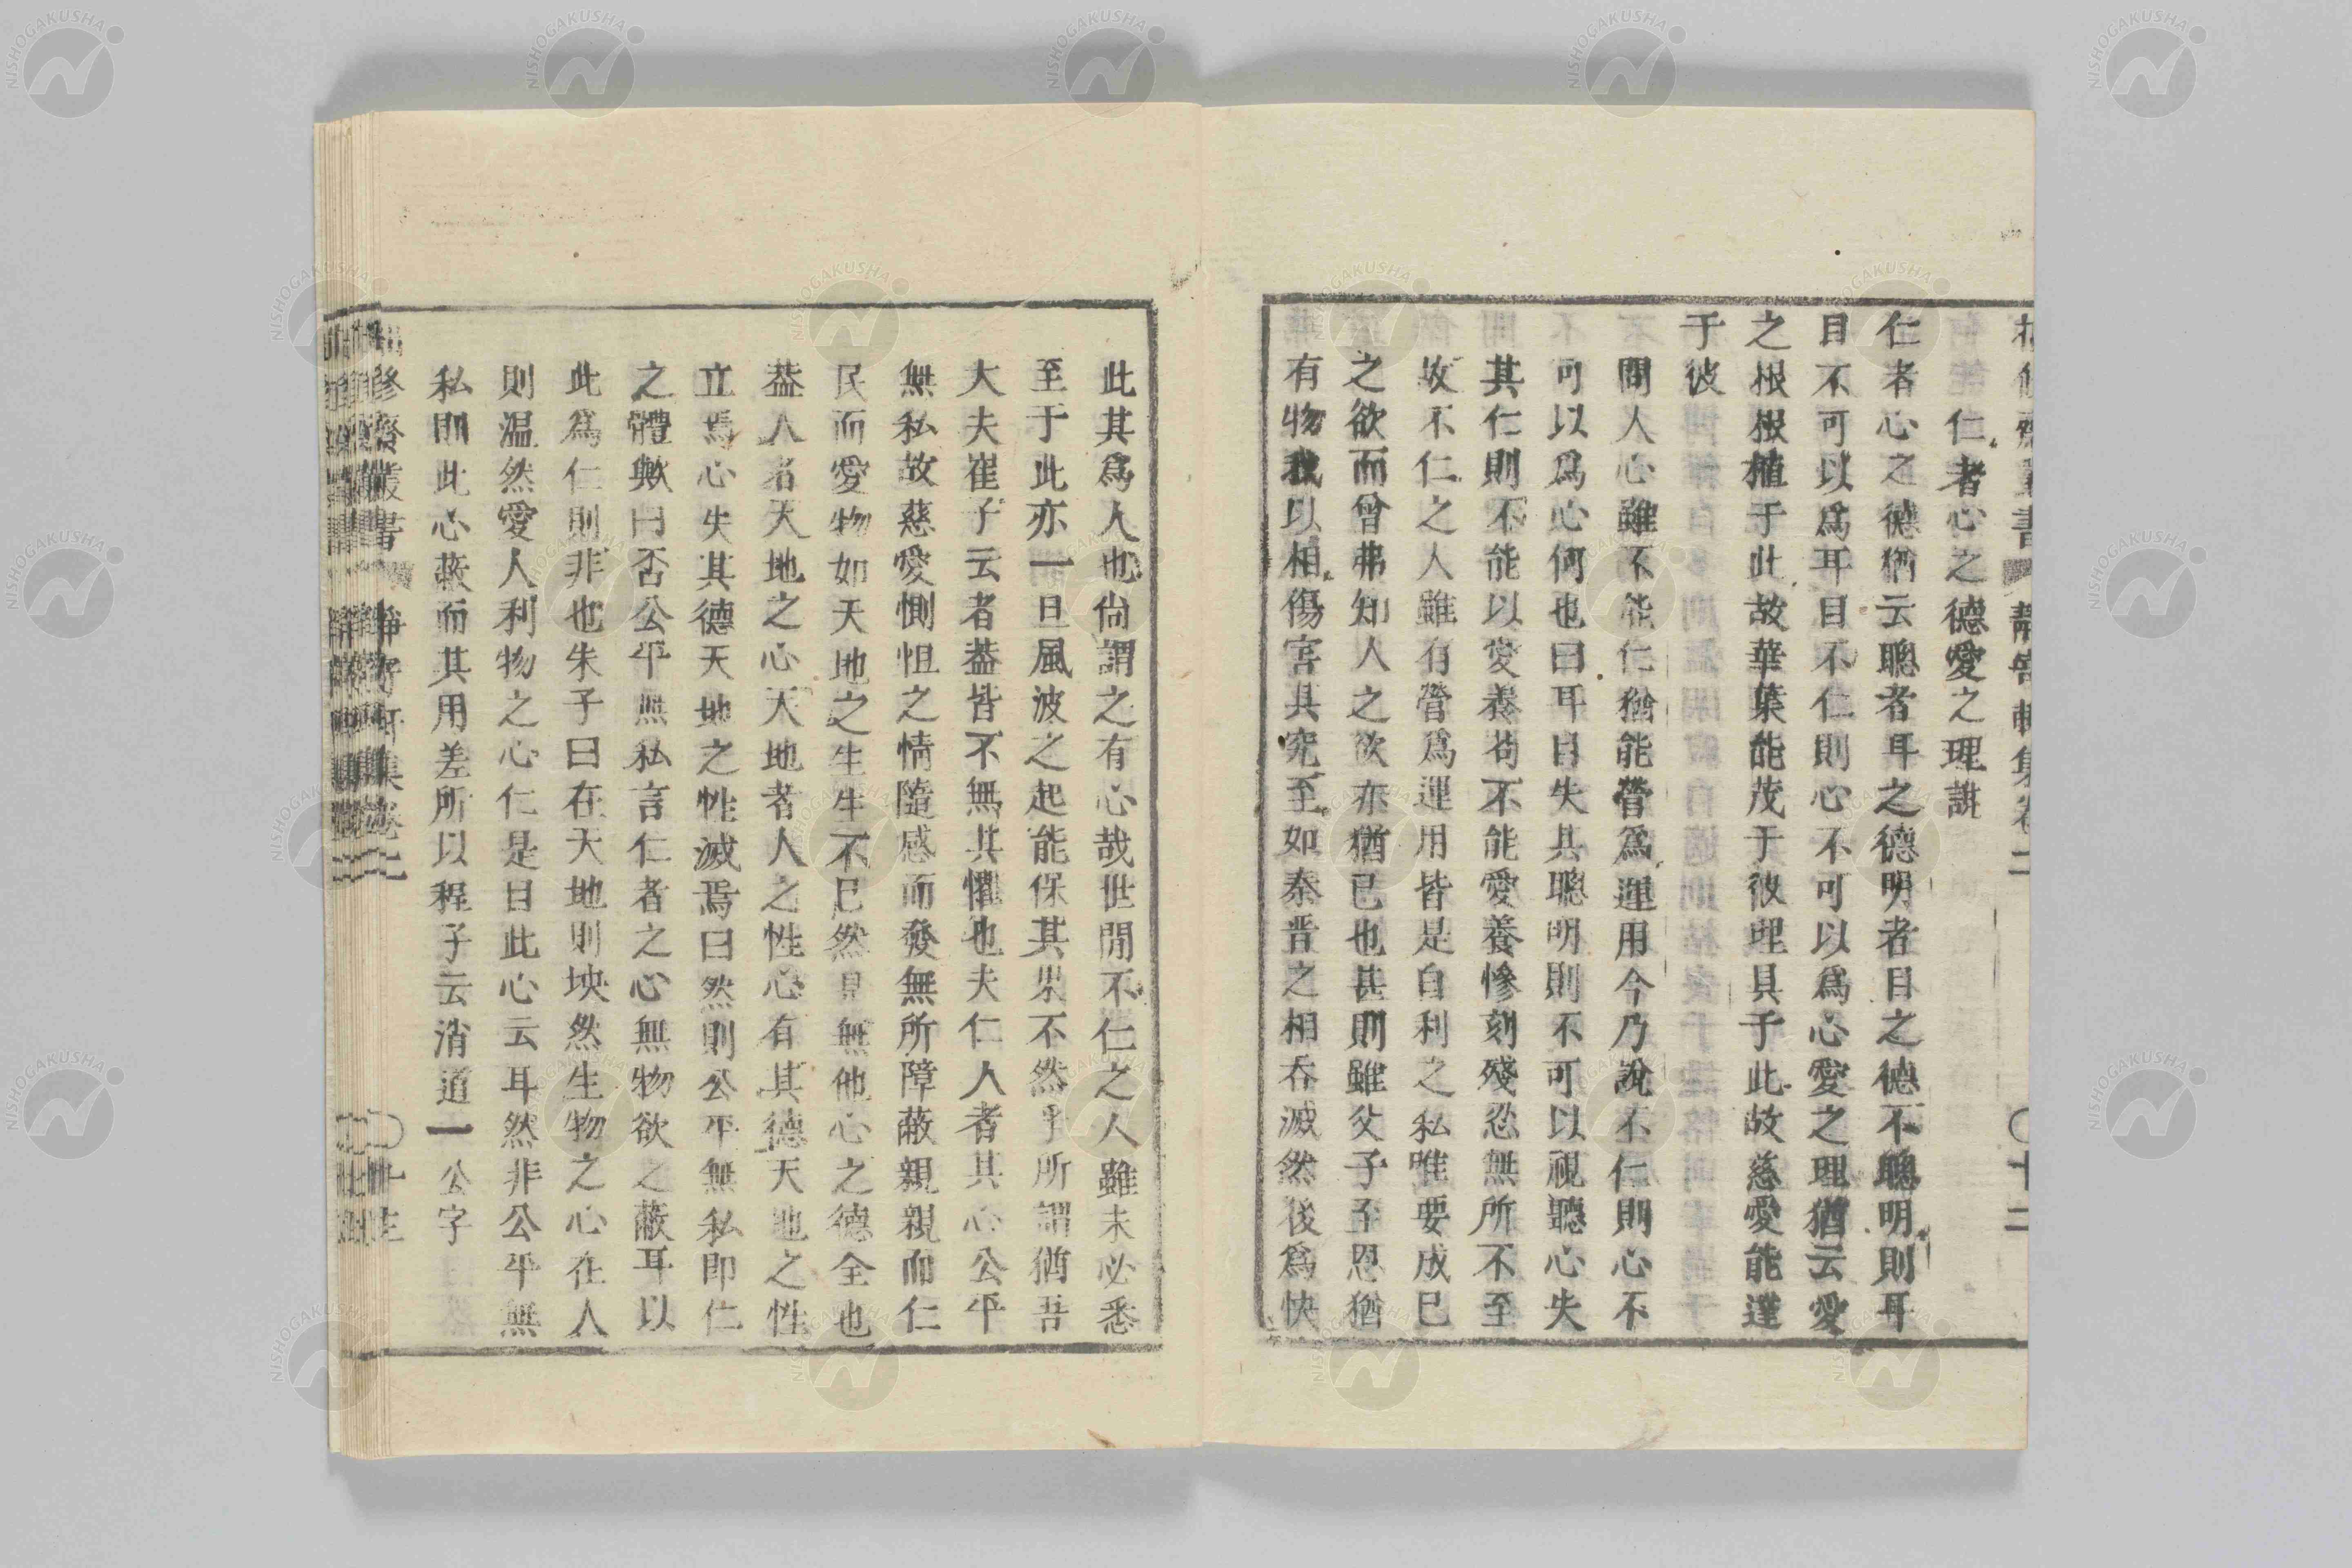 仁者心之德愛之理說
仁者心之德猶云聰者耳之德明者目之德不聰明則耳
目不可以爲耳目不仁則心不可以爲心愛之理猶云愛
之根根植于此故華葉能茂于彼理具于此故慈愛能達
于彼
問人心雖不能仁猶能營爲運用今乃說不仁則心不
可以爲心何也曰耳目失其聰明則不可以視聽心失
其仁則不能以愛養苟不能愛養慘刻殘忍無所不至
故不仁之人雖有營爲運用皆是自利之私唯要成已
之欲而曾弗知人之欲亦猶已也甚則雖父子至恩猶
有物我以相傷害其究至如秦晋之相吞滅然後爲快
此其爲人也尙謂之有心哉世間不仁之人雖未必悉
至于此亦一旦風波之起能保其果不然乎所謂猶吾
大夫崔子云者葢皆不無其懼也夫仁人者其心公平
無私故慈愛惻怛之情隨感而發無所障蔽親親而仁
民而愛物如天地之生生不已然見無他心之德全也
葢人者天地之心天地者人之性心有其德天地之性
立焉心失其德天地之性滅焉曰然則公平無私即仁
之體歟曰否公平無私言仁者之心無物欲之蔽耳以
此爲仁則非也朱子曰在天地則坱然生物之心在人
則温然愛人利物之心仁是目此心云耳然非公平無
私則此心蔽而其用差所以程子云消道一公字
脩齋叢書 靜寄軒集卷二
NISHOGAKUSHA